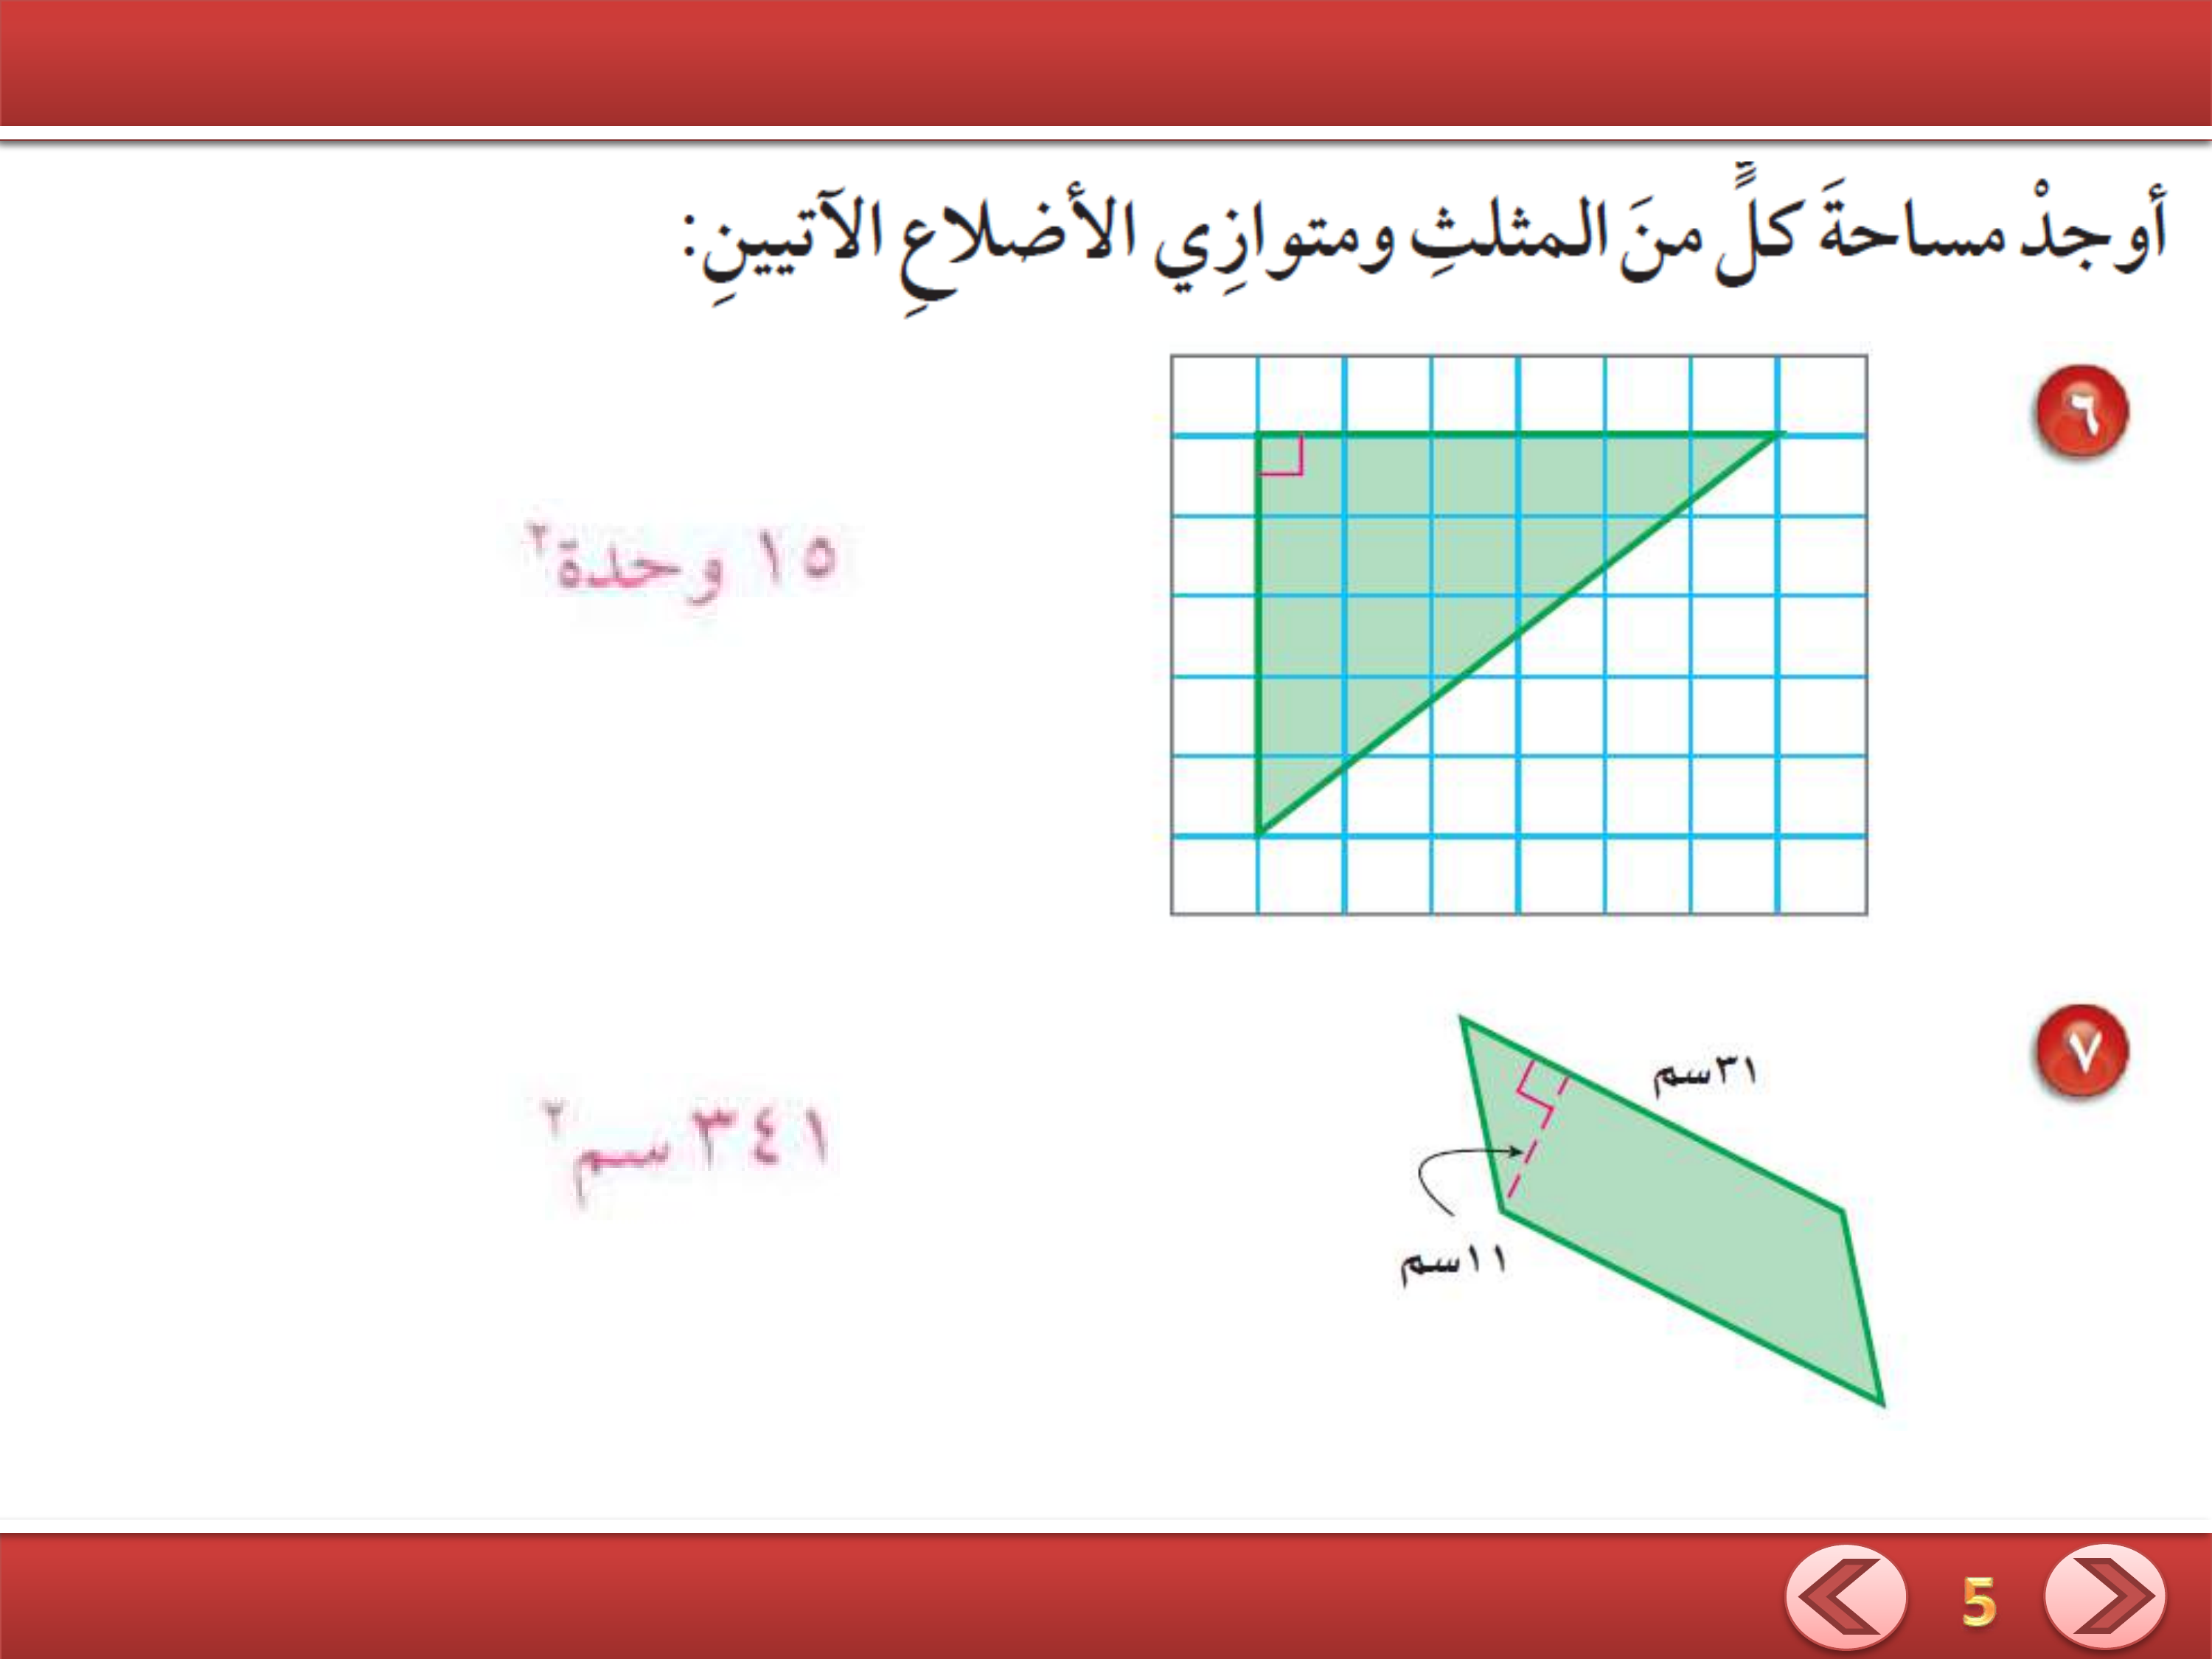 أوجدْ مساحةَ كلٍّ منَ المثلثِ ومتوازِي الأضلاعِ الآتيينِ:
٦
١٥ وحدة٢
٧
٣١سم
٣٤١ سم٢
١١سم
5